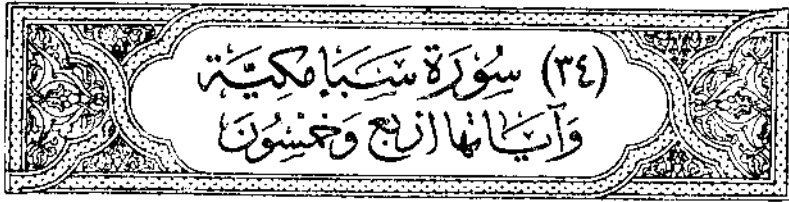 (٣٤) سُوْرَة سَبَا مَكيَّة
وَآيَاتها أربَع وَخمسُونَ